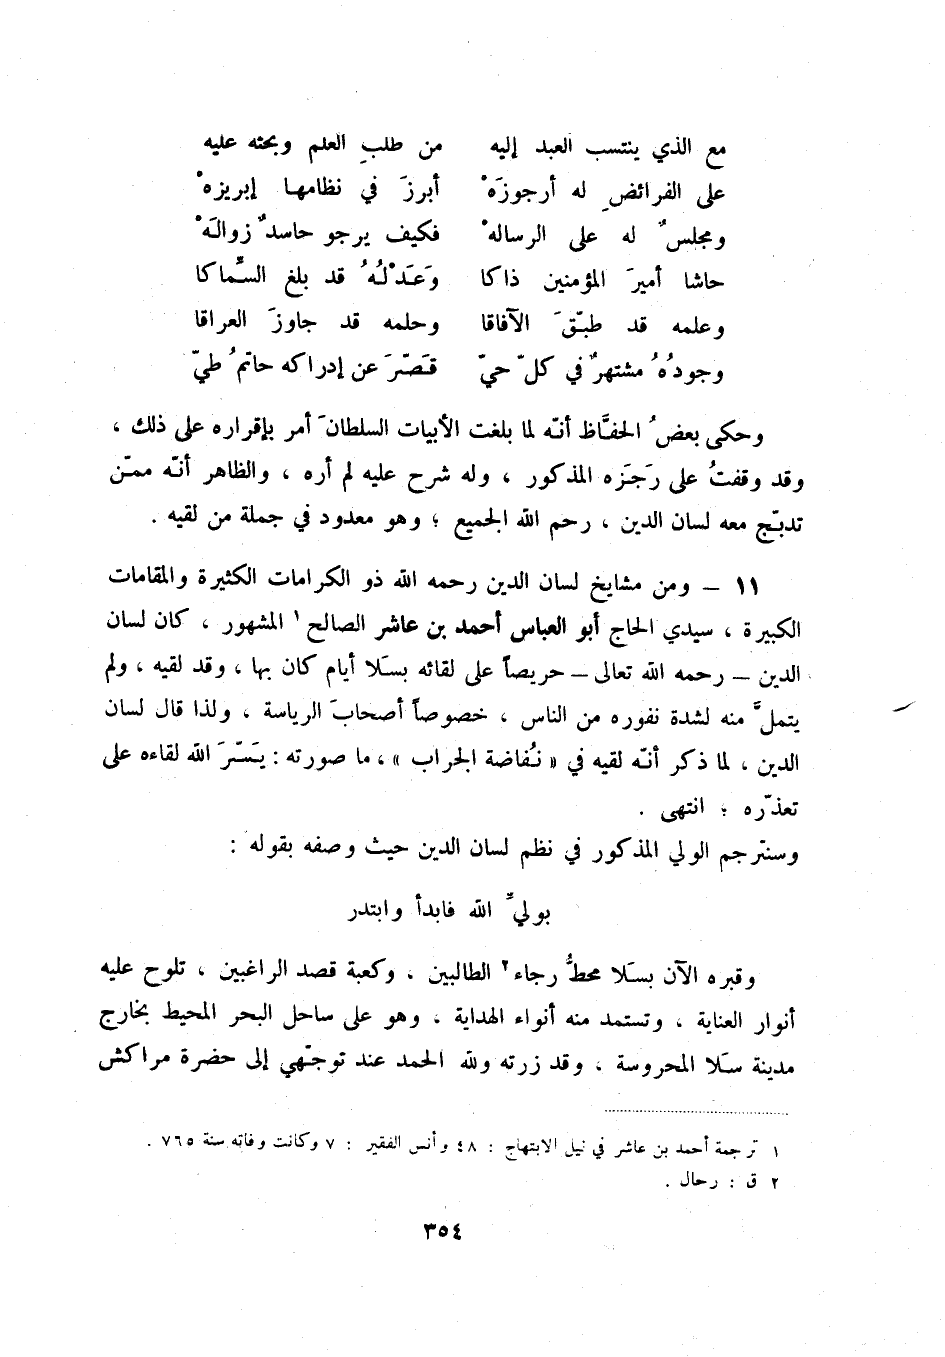 مع الذي ينتسب العبد إليه من طلبِ العلم وبحثه عليه
على الفرائضِ له أرجوزَهْ أبرزَ في نظامها إبريزهْ
ومجلسٌ له على الرسالهْ فكيف يرجو حاسدٌ زوالَهْ
حاشا أميرَ المؤمنين ذاكا وَعَدْلُهُ قد بلغ السِّماكا
وعلمه قد طبّقَ الآفاقا وحلمه قد جاوزَ العراقا
وجودُهُ مشتهرٌ في كلّ حيّ قَصّرَ عن إدراكه حاتمُ طيّ
وحكى بعضُ الحفَّاظ أنّه لما بلغت الأبيات السلطانَ أمر بإقراره على ذلك ،
وقد وقفتُ على رَجَزه المذكور ، وله شرح عليه لم أره ، والظاهر أنّه ممّن
تدبّج معه لسان الدين ، رحم الله الجميع ؛ وهو معدود في جملة من لقيه .
١١ – ومن مشايخ لسان الدين رحمه الله ذو الكرامات الكثيرة والمقامات
الكبيرة ، سيدي الحاج أبو العباس أحمد بن عاشر الصالح ١ المشهور ، كان لسان
الدين – رحمه الله تعالى – حريصاً على لقائه بسَلا أيام كان بها ، وقد لقيه ، ولم
يتملَّ منه لشدة نفوره من الناس ، خصوصاً أصحابَ الرياسة ، ولذا قال لسان
الدين ، لما ذكر أنّه لقيه في « نُفاضة الجراب » ، ما صورته : يَسّرَ الله لقاءه على
تعذّره ؛ انتهى .
وسنترجم الولي المذكور في نظم لسان الدين حيث وصفه بقوله :
بوليِّ الله فابدأ وابتدر
وقبره الآن بسَلا محطُّ رجاء ٢ الطالبين ، وكعبة قصد الراغبين ، تلوح عليه
أنوار العناية ، وتستمد منه أنواء الهداية ، وهو على ساحل البحر المحيط بخارج
مدينة سَلا المحروسة ، وقد زرته ولله الحمد عند توجّهي إلى حضرة مراكش
١ ترجمة أحمد بن عاشر في نيل الابتهاج : ٤٨ وأنس الفقير : ٧ وكانت وفاته سنة ٧٦٥ .
٢ ق : رحال .
٣٥٤